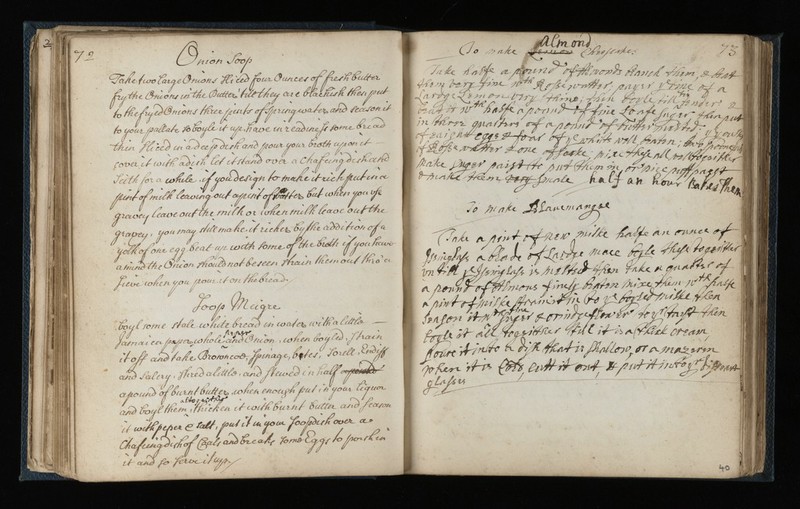 72
Onion Soop
Take two large Onions sliced four Ounces of fresh butter
fry the Onions in the Butter till they are blackish then put
to the fryed Onions three pints of spring water, and season it
to your pallate & boyle it up, have in readiness some bread
thin sliced in a deep dish and pour your broth upon it
cover it with a dish let it stand over a Chafeing dish and
Seeth for a while, if you design to make it rich put in a
pint of milk leaving out a pint of water, but when you use
gravey leave out the milk or when milk leave out the
gravey. you may still make it richer by the addition of a
yolk of one egg beat up with some of the broth if you have
a mind the Onion should not be seen strain them out thro' a
sieve when you pour it on the bread
Soop Meigre
boyl some stale white bread in water with a little
Jamaica peper whole and Onion, when boyled strain
it off and take Spinage, betes, Sorell, Endiff
and Salery, shred a little and stewed in half
a pound of burnt butter, when enough put in your liquor
and boyl them together thicken it with burnt butter and season
it with peper & salt, put it in your soop dish over a
Chafeing dish of Coals and break some Eggs to poach in
it and so serve it up
73
To make Almond Cheescake:
Take halfe a pound of Almonds blanch them, & beat
them very fine with Rosewatter, paper
Large Lemon very thine, then boyle till tender &
beat it with halfe a pound of fine Loafe suger then put
in three quarters of a pound of butter melted
of eaight eggs & four of ye whits well beaten
of Rosewatter & one
make
& make them very smale half an hour bakes them
To make Blawemangee
Take a pint of new milke halfe an ounce of
Isinglass a blade of Large mace boyle these together
untill ye Isinglass is melted then take a quarter of
a pound of Almons finely beaten mixe them with halfe
a pint of milke strained in to ye boyled milke then
season it with suger & oringe flower to yr tast then
boyle it all together till it is a thick cream
poure it into a dish that is shallow, or a mazerin
when it is cold, cutt it out, & put it into yr different
glasses
40